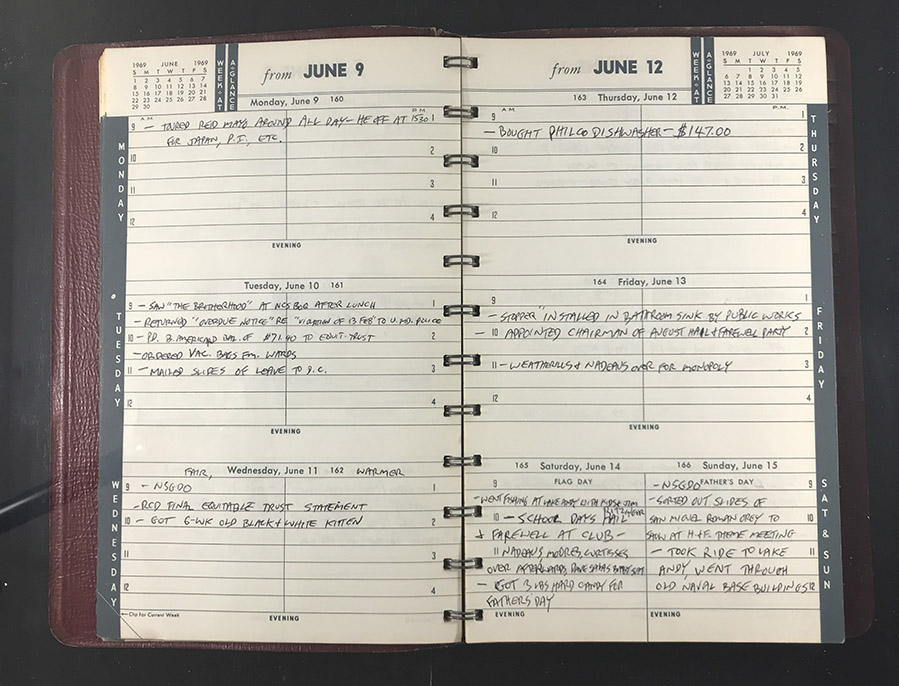 1969 JUNE 1969
S M T W T F S
1 2 3 4 5 6 7
8 9 10 11 12 13 14
15 16 17 18 19 20 21
22 23 24 25 26 27 28
29 30
WEEK-AT
A-GLANCE
from JUNE 9
Monday, June 9 160
MONDAY
A.M. P.M.
9 – TOURED REID MAYO AROUND ALL DAY – HE OFF AT 1530 1
FOR JAPAN, P.I., ETC.
10 2
11 3
12 4
EVENING
Tuesday, June 10 161
TUESDAY
9 – SAW "THE BROTHERHOOD" AT NCS BOQ AFTER LUNCH 1
– RETURNED "OVERDUE NOTICE" RE "VIOLATION OF 13 FEB" TO U. MD. POLICE
10 – PD. B. AMERICARD BAL. OF $71.40 TO EQUIT. TRUST 2
– ORDERED VAC. BAGS FM. WARDS
11 – MAILED SLIPES OF LEAVE TO D.C. 3
12 4
EVENING
FAIR, Wednesday, June 11 162 WARMER
WEDNESDAY
9 – NSGDO 1
– RCD FINAL EQUITABLE TRUST STATEMENT
10 – GOT 6-WK OLD BLACK & WHITE KITTEN 2
11 3
12 4
←Clip For Current Week
EVENING
from JUNE 12
WEEK-AT
A-GLANCE
1969 JULY 1969
S M T W T F S
1 2 3 4 5
6 7 8 9 10 11 12
13 14 15 16 17 18 19
20 21 22 23 24 25 26
27 28 29 30 31
163 Thursday, June 12
THURSDAY
A.M. P.M.
9 1
– BOUGHT PHILCO DISHWASHER – $147.00
10 2
11 3
12 4
EVENING
164 Friday, June 13
FRIDAY
9 1
– "STOPPER" INSTALLED IN BATHROOM SINK BY PUBLIC WORKS
– 10 APPOINTED CHAIRMAN OF AUGUST HAIL & FAREWELL PARTY 2
11 – WEATHERILLS & NADEAUS OVER FOR MONOPOLY 3
12 4
EVENING
165 Saturday, June 14
9 FLAG DAY
– WENT FISHING AT LAKE ANDY WITH KIDS & JIM
10 – SCHOOL DAYS HAIL
& FAREWELL AT CLUB –
11 NADEAUS, MOORES, CURTISSES
OVER AFTERWARDS,
– GOT 3 LBS HARD CANDY FOR
FATHERS DAY
EVENING
166 Sunday, June 15
SAT & SUN
– NSGDO FATHER'S DAY 9
– SORTED OUT SLIDES OF
SAN MIGUEL ROMAN OREY TO 10
SHOW AT H+F. THEME MEETING
– TOOK RIDE TO LAKE 11
ANDY, WENT THROUGH
OLD NAVAL BASE BUILDINGS 12
EVENING